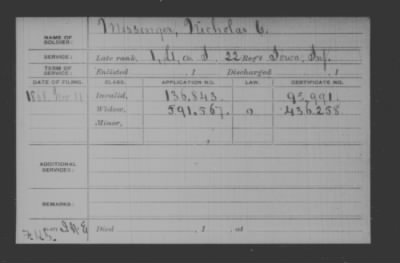 NAME OF SOLDIER: Missinger, Nicholas C.
SERVICE: Late rank, 1, Lt, Co. I. 22 Reg't Iowa, Inf.
TERM OF SERVICE: Enlisted , 1 Discharged , 1
DATE OF FILING. CLASS. APPLICATION NO. LAW. CERTIFICATE NO.
Invalid, 136,843. 95,991.
Widow, 591,567. 436,258
Minor, ,
ADDITIONAL SERVICES:
REMARKS:
Died , 1 , at